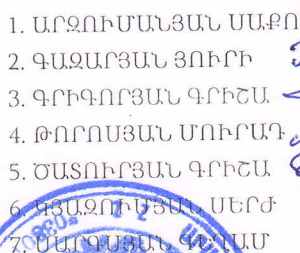 1. ԱՐԶՈՒՄԱՆՅԱՆ ՍԱՔՈ
2. ԳԱԶԱՐՅԱՆ ՅՈՒՐԻ
3. ԳՐԻԳՈՐՅԱՆ ԳՐԻՇԱ
4. ԹՈՐՈՍՅԱՆ ՄՈՒՐԱԴ
5. ԾԱՏՈՒՐՅԱՆ ԳՐԻՇԱ
6. ԿՅԱԶՈՒՄՅԱՆ ՍԵՐԺ
7. ՍԱՐԳՍՅԱՆ ԳԵՂԱՄ